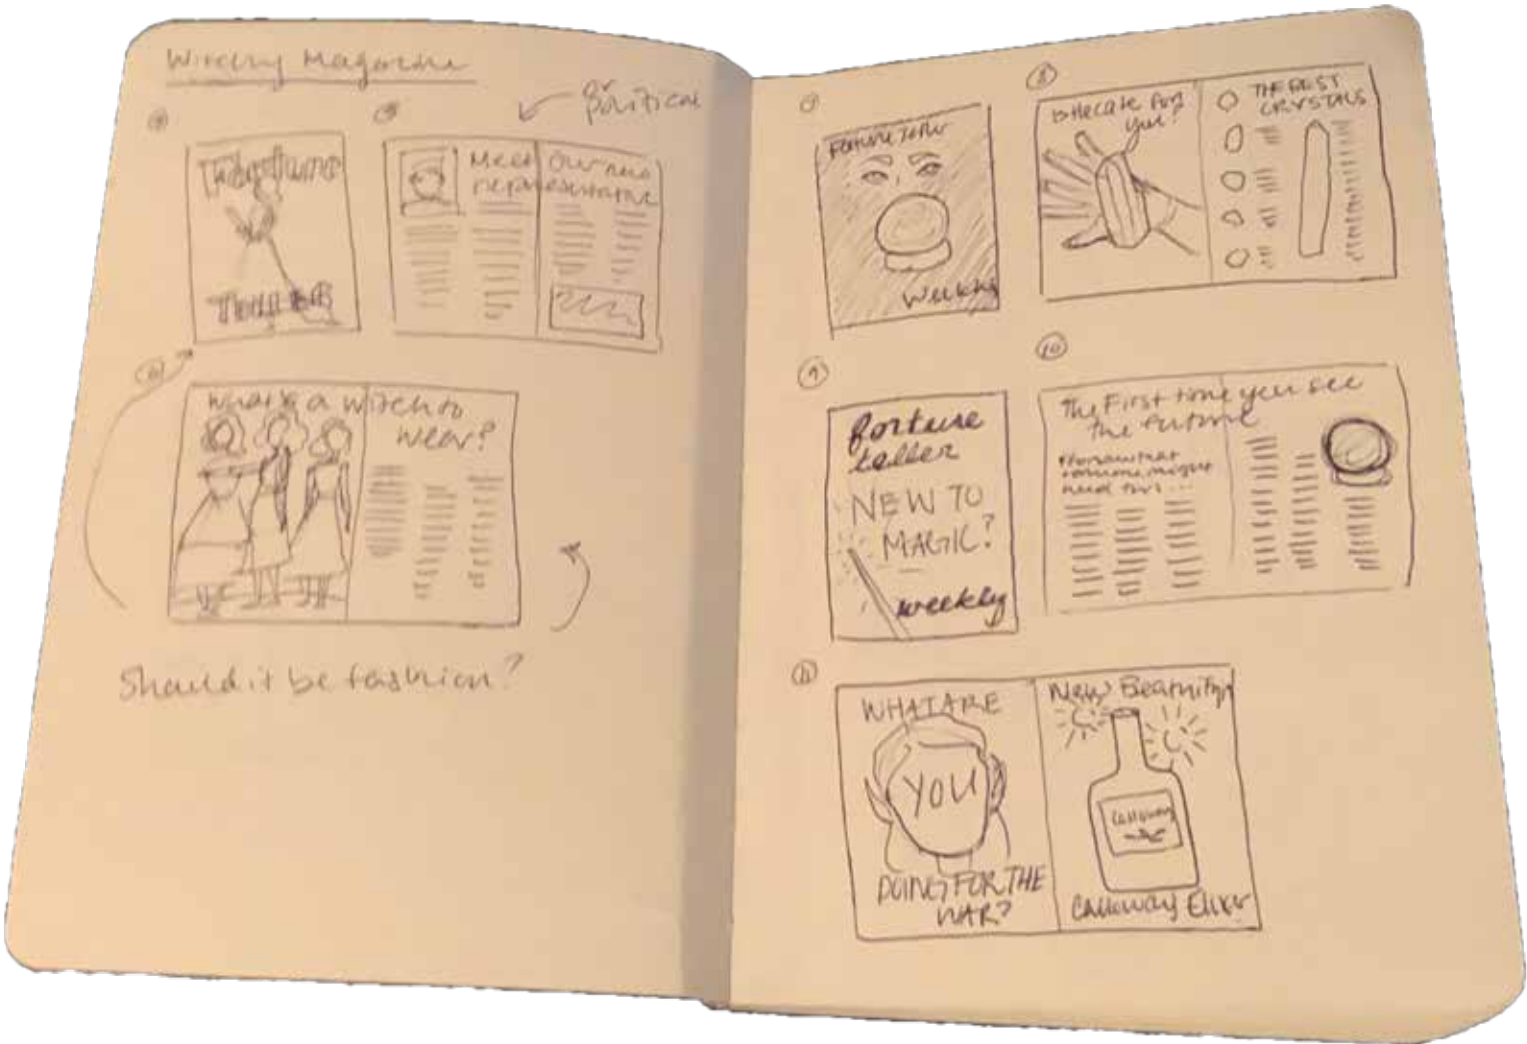 Witchy Magazine
or
political
4
5
Fortune
Teller
Meet Our new
representative
6
What's a witch to
wear?
Should it be fashion?
7
Fortune Teller
Weekly
8
Is Hecate for
you?
THE BEST
CRYSTALS
9
fortune
teller
NEW TO
MAGIC?
weekly
10
The First time you see
the future
someone might
need this...
11
WHAT ARE
YOU
DOING FOR THE
WAR?
New
Calloway
Calloway Elixir